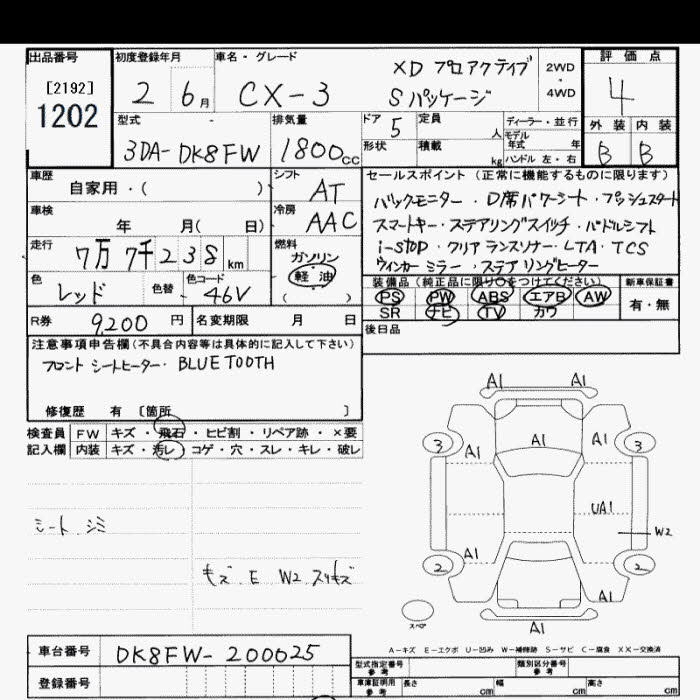 出品番号
[2192]
1202
初度登録年月
2 6月
車名・グレード
CX-3
XD プロアクティブ
Sパッケージ
2WD
・
4WD
評価点
4
外装 内装
B B
型式
3DA-DK8FW
排気量
1800cc
ドア
5
定員
人
形状
積載
kg
ディーラー・並行
モデル年式 年
ハンドル 左・右
車歴
自家用・( )
シフト
AT
車検
年 月( 日)
冷房
AAC
走行
7万7千238km
燃料
ガソリン
・
軽油
( )
色
レッド
色替
色コード
46V
セールスポイント (正常に機能するものに限ります)
バックモニター・D席パワーシート・プッシュスタート
スマートキー・ステアリングスイッチ・パドルシフト
i-stop・クリアランスソナー・LTA・TCS
ウィンカーミラー・ステアリングヒーター
装備品 (純正品に限り○をつけてください)
PS PW ABS エアB AW
SR ナビ TV カワ
新車保証書
有・無
R券
9,200 円
名変期限
月 日
後日品
注意事項申告欄 (不具合内容等は具体的に記入して下さい)
フロントシートヒーター・BLUETOOTH
修復歴 有 〔箇所 〕
検査員
記入欄
FW キズ・飛石・ヒビ割・リペア跡・×要
内装 キズ・汚レ・コゲ・穴・スレ・キレ・破レ
シート シミ
キズ E W2 スリキズ
A1 A1
3 A1 A1 A1 3
UA1
W2
A1
2 2
A1
A1
スペア
A-キズ E-エクボ U-凹み W-補修跡 S-サビ C-腐食 XX-交換済
車台番号
DK8FW-200025
登録番号
型式指定番号
参考
類別区分番号
参考
車庫証明用
参考
長さ cm
幅 cm
高さ cm